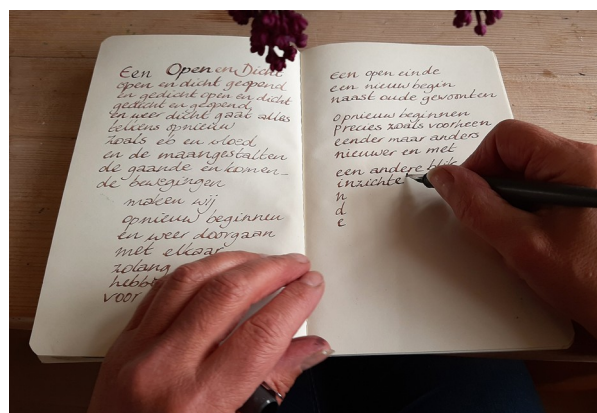 Een Open en Dicht
open en dicht geopend
en gedicht open en dicht
gedicht en geopend,
en weer dicht gaat alles
telkens opnieuw
zoals eb en vloed
en de maangestalten
de gaande en komen-
de bewegingen
maken wij
opnieuw beginnen
en weer doorgaan
met elkaar
zolang
hebb
voor
Een open einde
een nieuw begin
naast oude gewoonten
opnieuw beginnen
Precies zoals voorheen
eender maar anders
nieuwer en met
een andere blik
inzichte
n
d
e